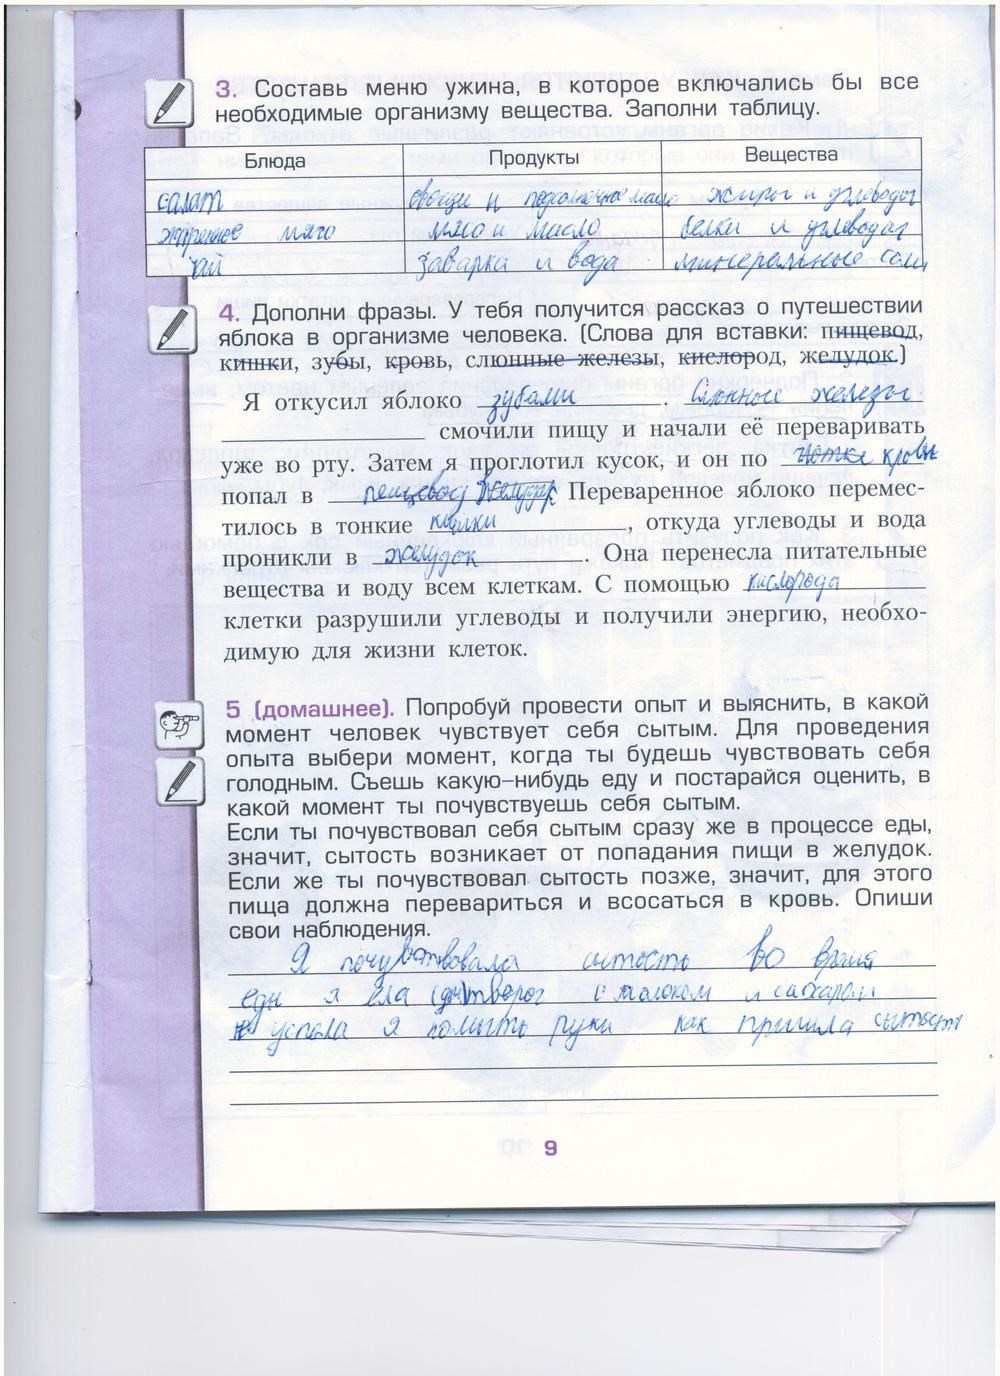 3. Составь меню ужина, в которое включались бы все
необходимые организму вещества. Заполни таблицу.
Блюда Продукты Вещества
салат овощи и подсолнечное масло жиры и углеводы
жареное мясо мясо и масло белки и углеводы
чай заварка и вода минеральные соли
4. Дополни фразы. У тебя получится рассказ о путешествии
яблока в организме человека. (Слова для вставки: пищевод,
кишки, зубы, кровь, слюнные железы, кислород, желудок.)
Я откусил яблоко зубами . Слюные железы
смочили пищу и начали её переваривать
уже во рту. Затем я проглотил кусок, и он по крови
попал в пещевод желудок Переваренное яблоко перемес-
тилось в тонкие кишки , откуда углеводы и вода
проникли в желудок Она перенесла питательные
вещества и воду всем клеткам. С помощью кислорода
клетки разрушили углеводы и получили энергию, необхо-
димую для жизни клеток.
5 (домашнее). Попробуй провести опыт и выяснить, в какой
момент человек чувствует себя сытым. Для проведения
опыта выбери момент, когда ты будешь чувствовать себя
голодным. Съешь какую-нибудь еду и постарайся оценить, в
какой момент ты почувствуешь себя сытым.
Если ты почувствовал себя сытым сразу же в процессе еды,
значит, сытость возникает от попадания пищи в желудок.
Если же ты почувствовал сытость позже, значит, для этого
пища должна перевариться и всосаться в кровь. Опиши
свои наблюдения.
Я почувствовала сытость во время
еды я ела творог с молоком и сахаром
не успела я помыть руки как пришла сытость
9